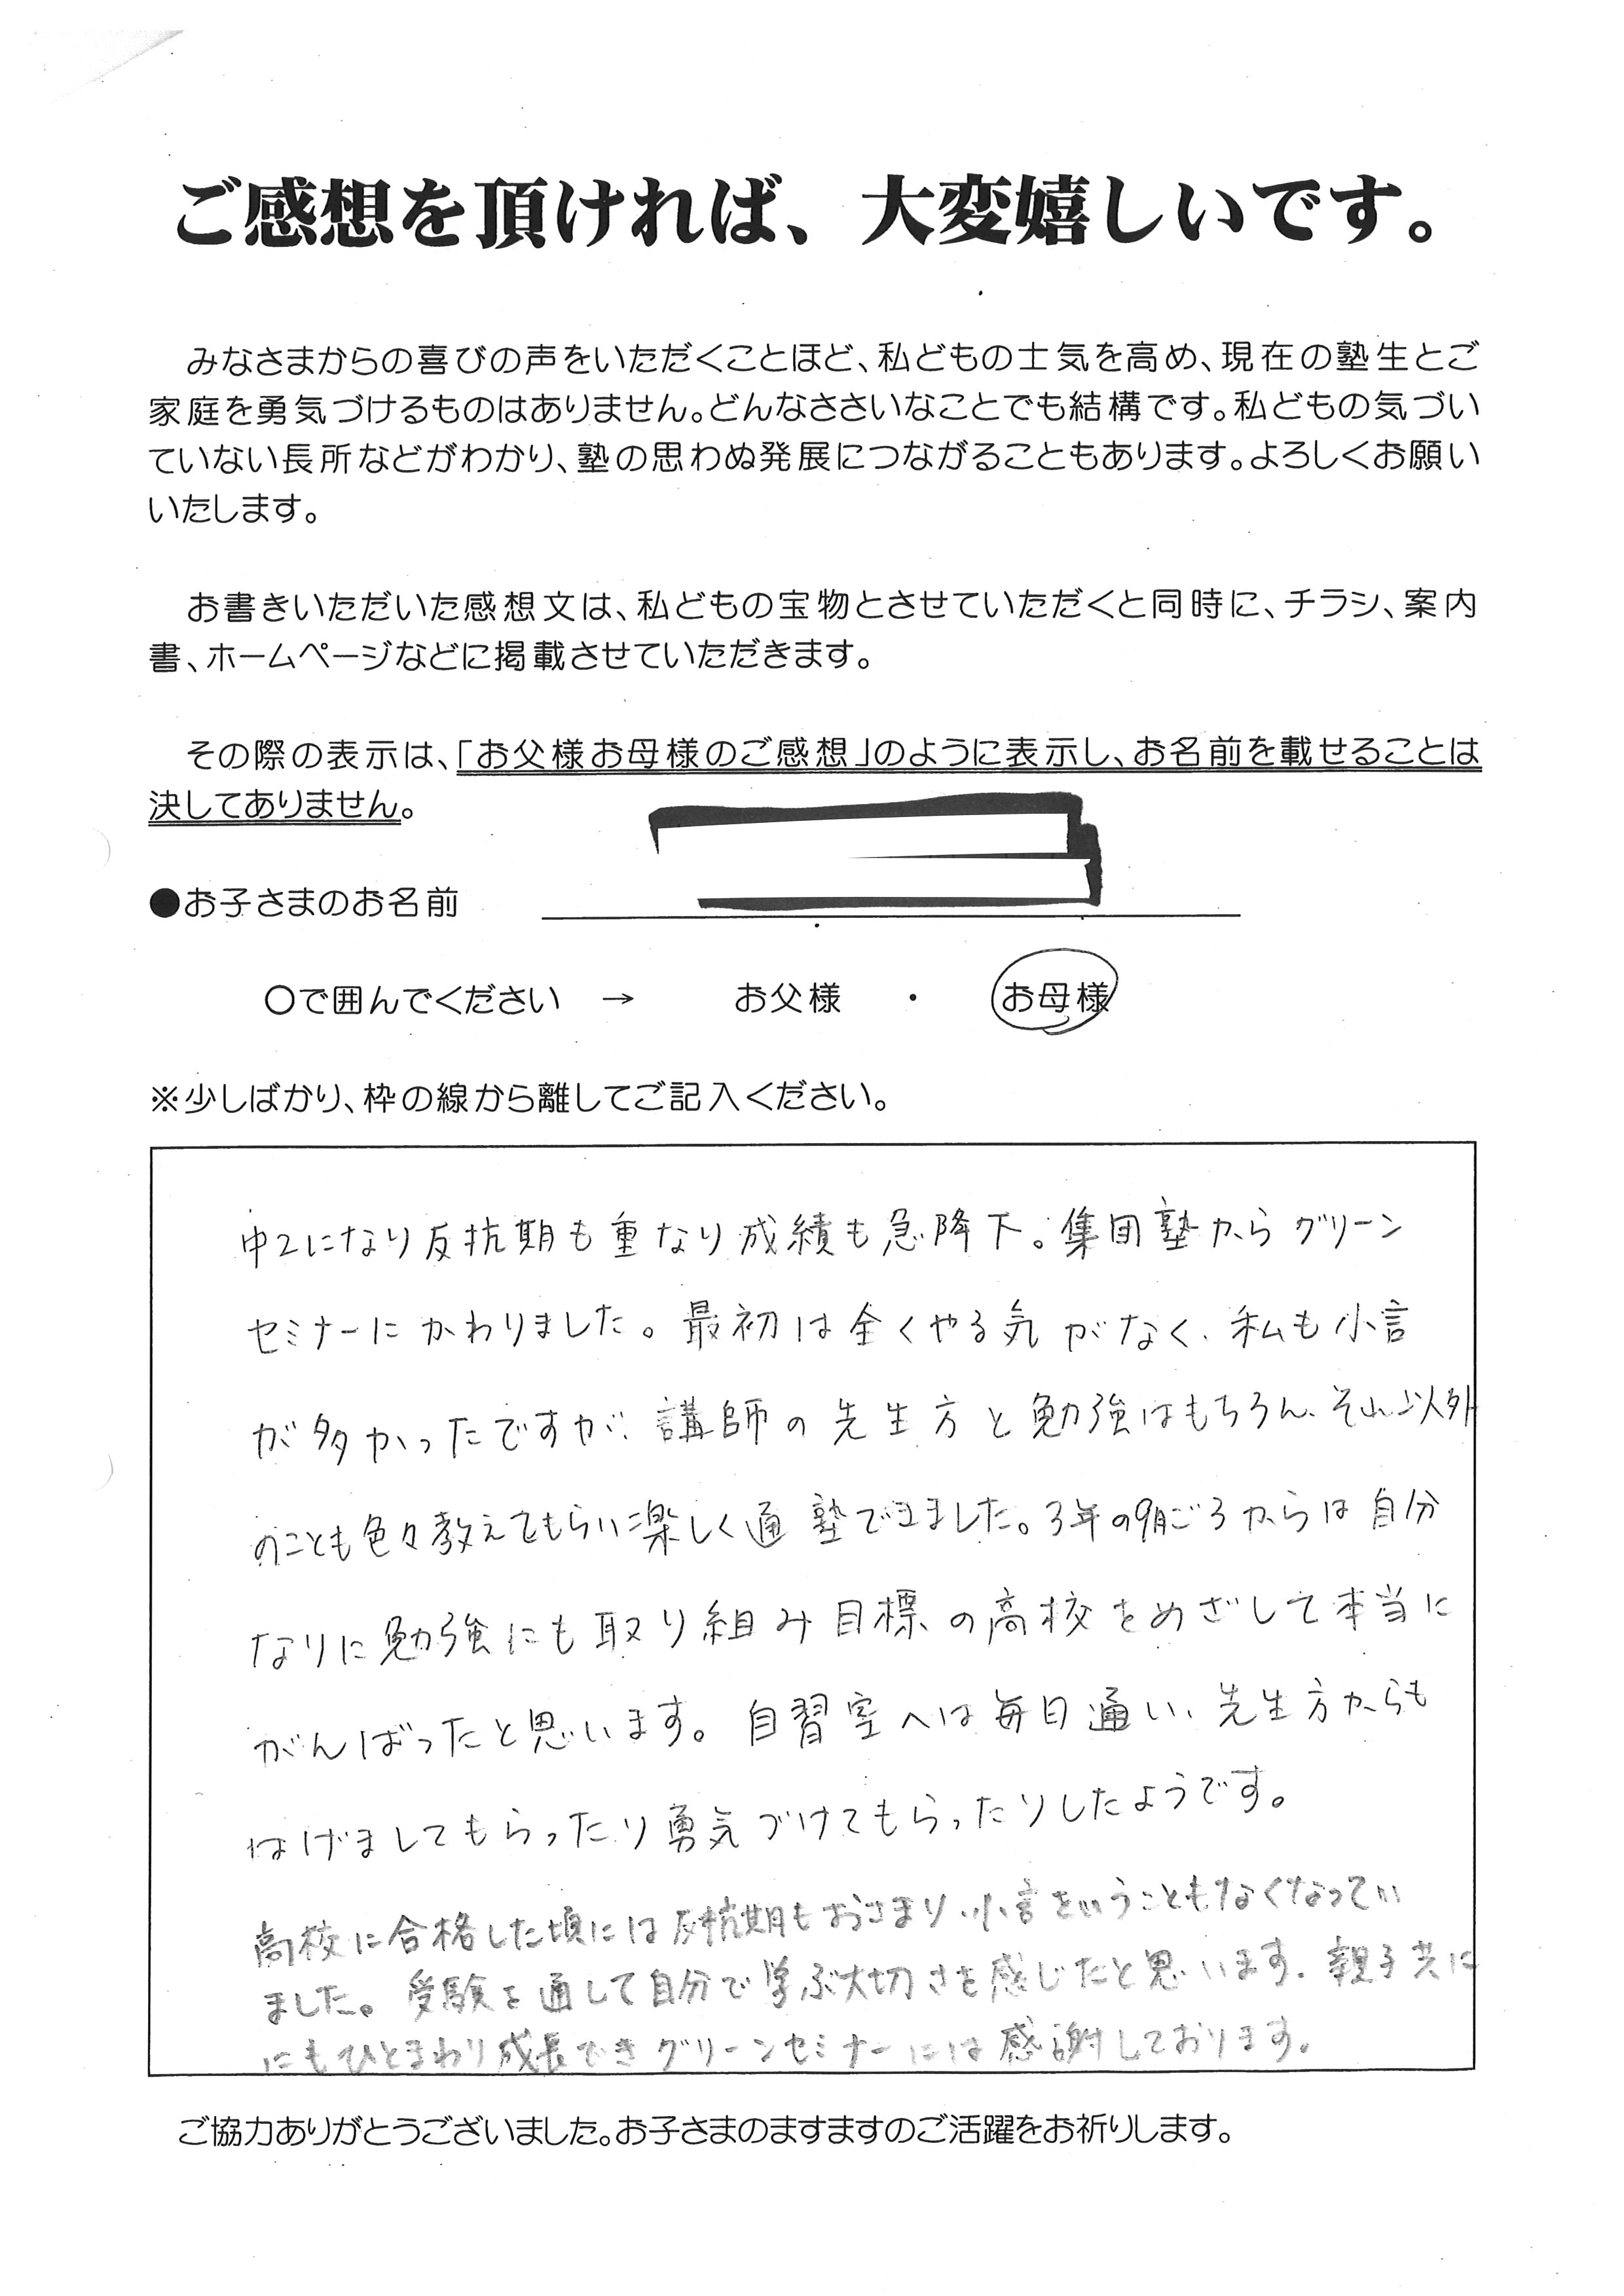 ご感想を頂ければ、大変嬉しいです。
みなさまからの喜びの声をいただくことほど、私どもの士気を高め、現在の塾生とご
家庭を勇気づけるものはありません。どんなささいなことでも結構です。私どもの気づい
ていない長所などがわかり、塾の思わぬ発展につながることもあります。よろしくお願い
いたします。
お書きいただいた感想文は、私どもの宝物とさせていただくと同時に、チラシ、案内
書、ホームページなどに掲載させていただきます。
その際の表示は、「お父様お母様のご感想」のように表示し、お名前を載せることは
決してありません。
●お子さまのお名前
○で囲んでください → お父様 ・ お母様
※少しばかり、枠の線から離してご記入ください。
中2になり反抗期も重なり成績も急降下。集団塾からグリーン
セミナーにかわりました。最初は全くやる気がなく、私も小言
が多かったですが、講師の先生方と勉強はもちろん、それ以外
のことも色々教えてもらい楽しく通塾できました。3年の9月ごろからは自分
なりに勉強にも取り組み目標の高校をめざして本当に
がんばったと思います。自習室へは毎日通い、先生方からも
はげましてもらったり勇気づけてもらったりしたようです。
高校に合格した頃には反抗期もおさまり、小言をいうこともなくなってい
ました。受験を通して自分で学ぶ大切さを感じたと思います。親子共に
にもひとまわり成長できグリーンセミナーには感謝しております。
ご協力ありがとうございました。お子さまのますますのご活躍をお祈りします。